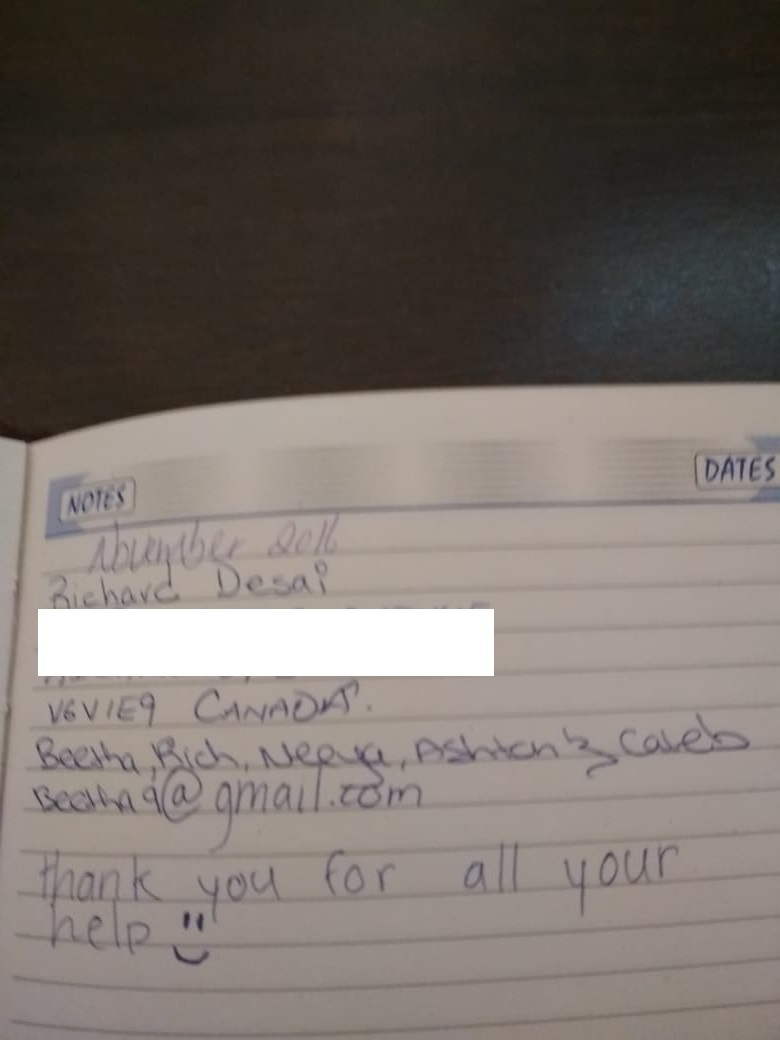 NOTES
DATES
November 2016
Richard Desai
V6V1E9 CANADA.
Beetha, Rich, Neeya, Ashton & Caleb
Beetha9@gmail.com
thank you for all your
help